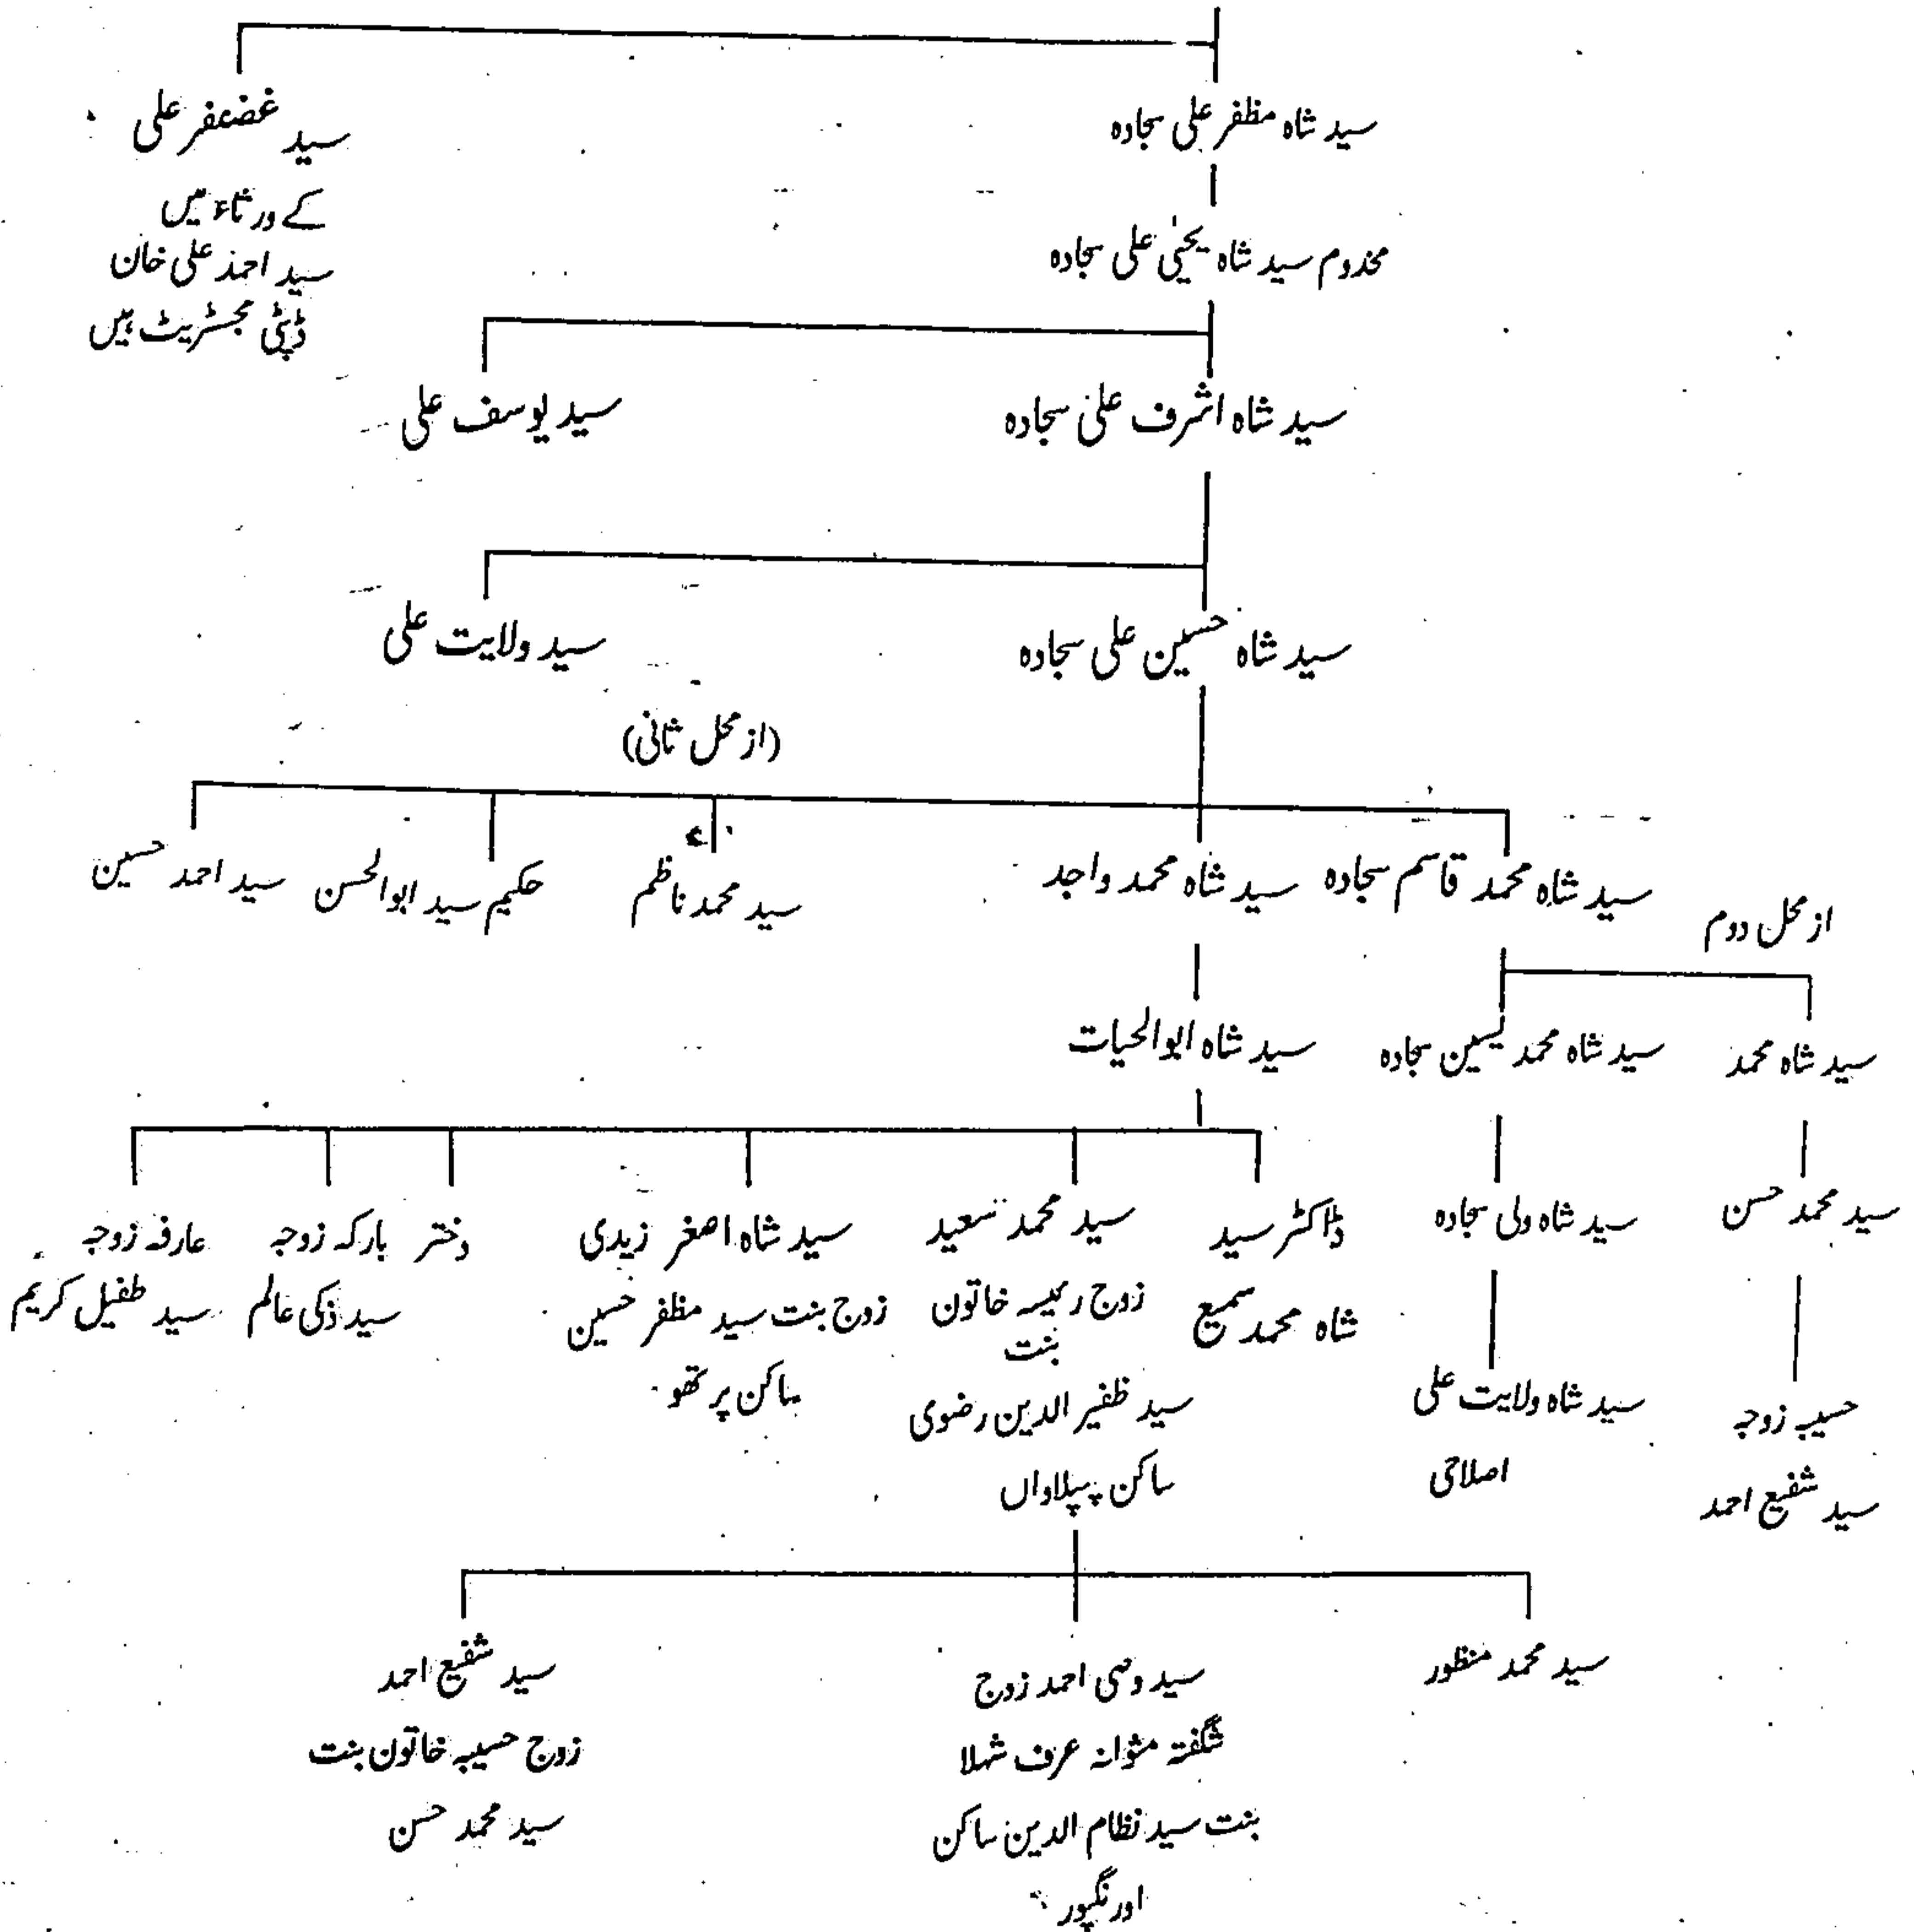 سید شاہ مظفر علی سجادہ
سید غضعفر علی
کے ورثاء میں
سید احمد علی خان
ڈپٹی مجسٹریٹ ہیں
مخدوم سید شاہ یحیٰی علی سجادہ
سید شاہ اشرف علی سجادہ
سید یوسف علی
سید شاہ حسین علی سجادہ
سید ولایت علی
(از محل ثانی)
سید شاہ محمد قاسم سجادہ
سید شاہ محمد واجد
سید محمد ناظم
حکیم سید ابوالحسن
سید احمد حسین
از محل دوم
سید شاہ محمد
سید شاہ محمد یٰسین سجادہ
سید شاہ ابوالحیات
سید محمد حسن
سید شاہ ولی سجادہ
ڈاکٹر سید
شاہ محمد سمیع
سید محمد سعید
زوج رئیسہ خاتون
بنت
سید ظفیر الدین رضوی
ساکن پیپلاواں
سید شاہ اصغر زیدی
زوج بنت سید مظفر حسین
ساکن پرتھو
دختر
بارکہ زوجہ
سید ذکی عالم
عارفہ زوجہ
سید طفیل کریم
حسیبہ زوجہ
سید شفیع احمد
سید شاہ ولایت علی
اصلاحی
سید محمد منظور
سید وصی احمد زوج
شگفتہ مثوانہ عرف شہلا
بنت سید نظام الدین ساکن
اورنگپور
سید شفیع احمد
زوج حسیبہ خاتون بنت
سید محمد حسن